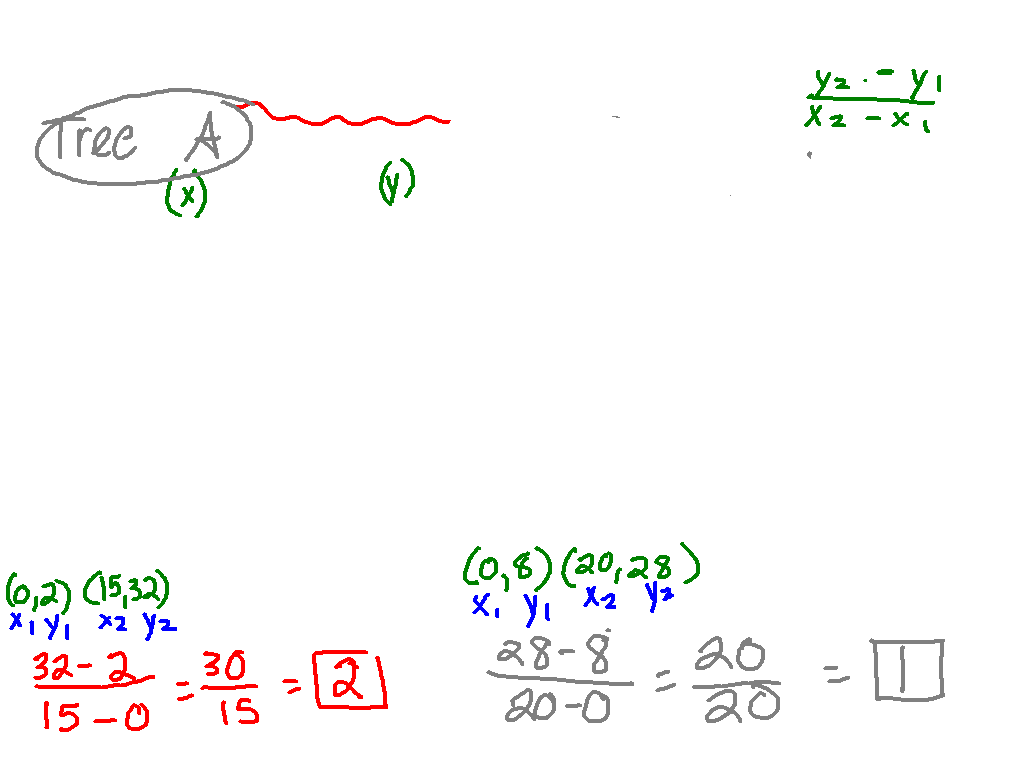 Tree A
y2 - y1
x2 - x1
(x) (y)
(0,2) (15,32)
x1 y1 x2 y2
32 - 2
15 - 0
= 30
15
= 2
(0,8) (20,28)
x1 y1 x2 y2
28 - 8
20 - 0
= 20
20
= 1